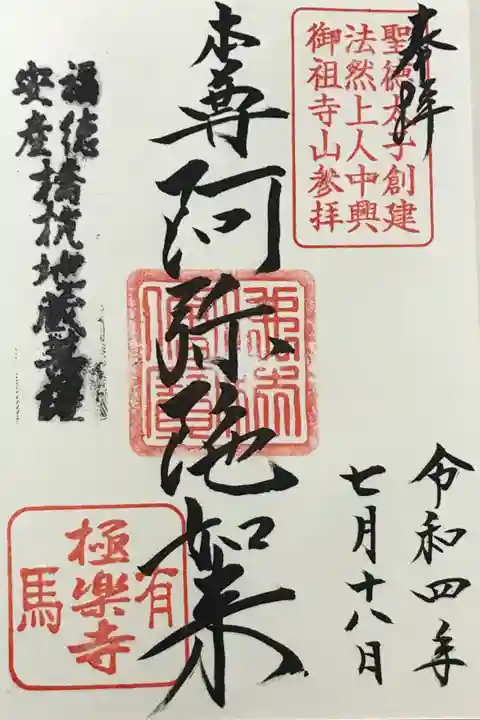 奉拝
聖徳太子創建
法然上人中興
御祖寺山参拝
令和四年
七月十八日
本尊阿弥陀如来
福徳
安産
橋杭地蔵尊
有馬
極楽寺